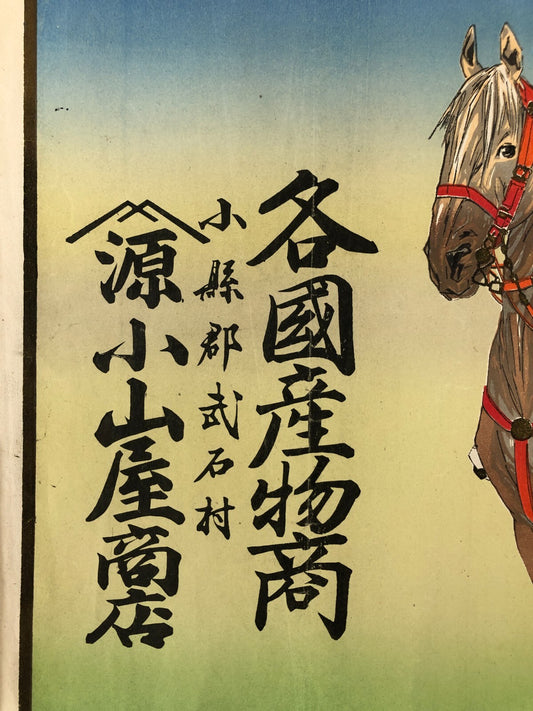 各國產物商
小縣郡武石村
源小山屋商店